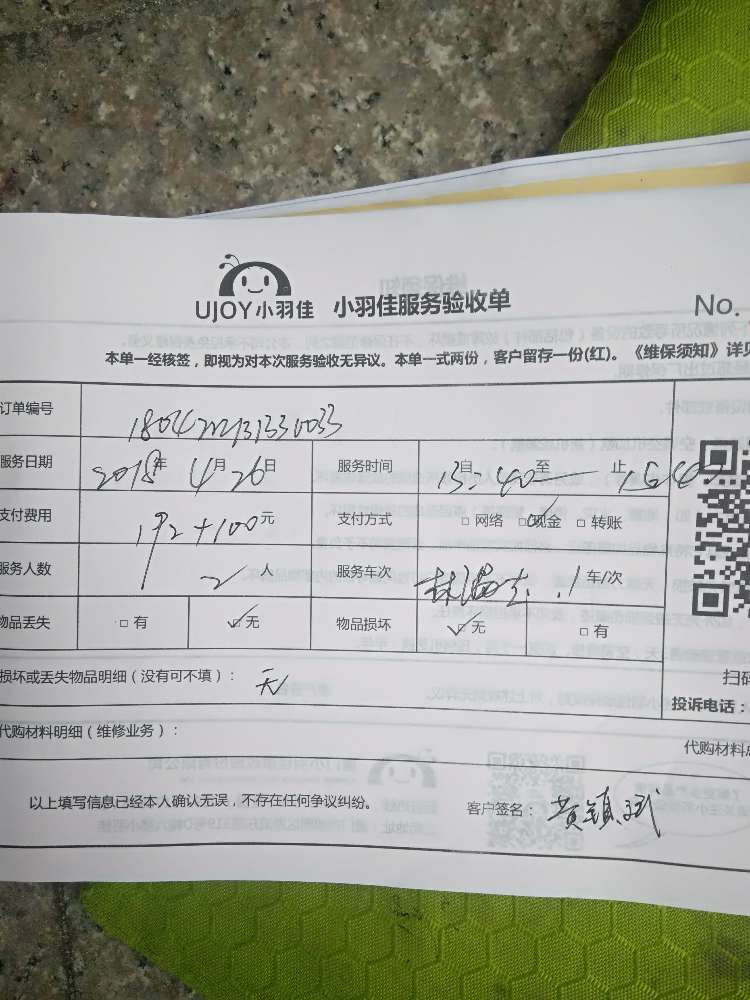 UJOY小羽佳 小羽佳服务验收单
No.
本单一经核签，即视为对本次服务验收无异议。本单一式两份，客户留存一份(红)。《维保须知》详见
订单编号
服务日期 2018年 4月26日 服务时间 13自:40至 止15:40
支付费用 192+100元 支付方式 □ 网络 ☑现金 □ 转账
服务人数 2人 服务车次 1车/次
物品丢失 □ 有 ☑无 物品损坏 ☑无 □ 有
损坏或丢失物品明细（没有可不填）：无
扫码
投诉电话：
代购材料明细（维修业务）：
代购材料
以上填写信息已经本人确认无误，不存在任何争议纠纷。 客户签名：黄镇斌